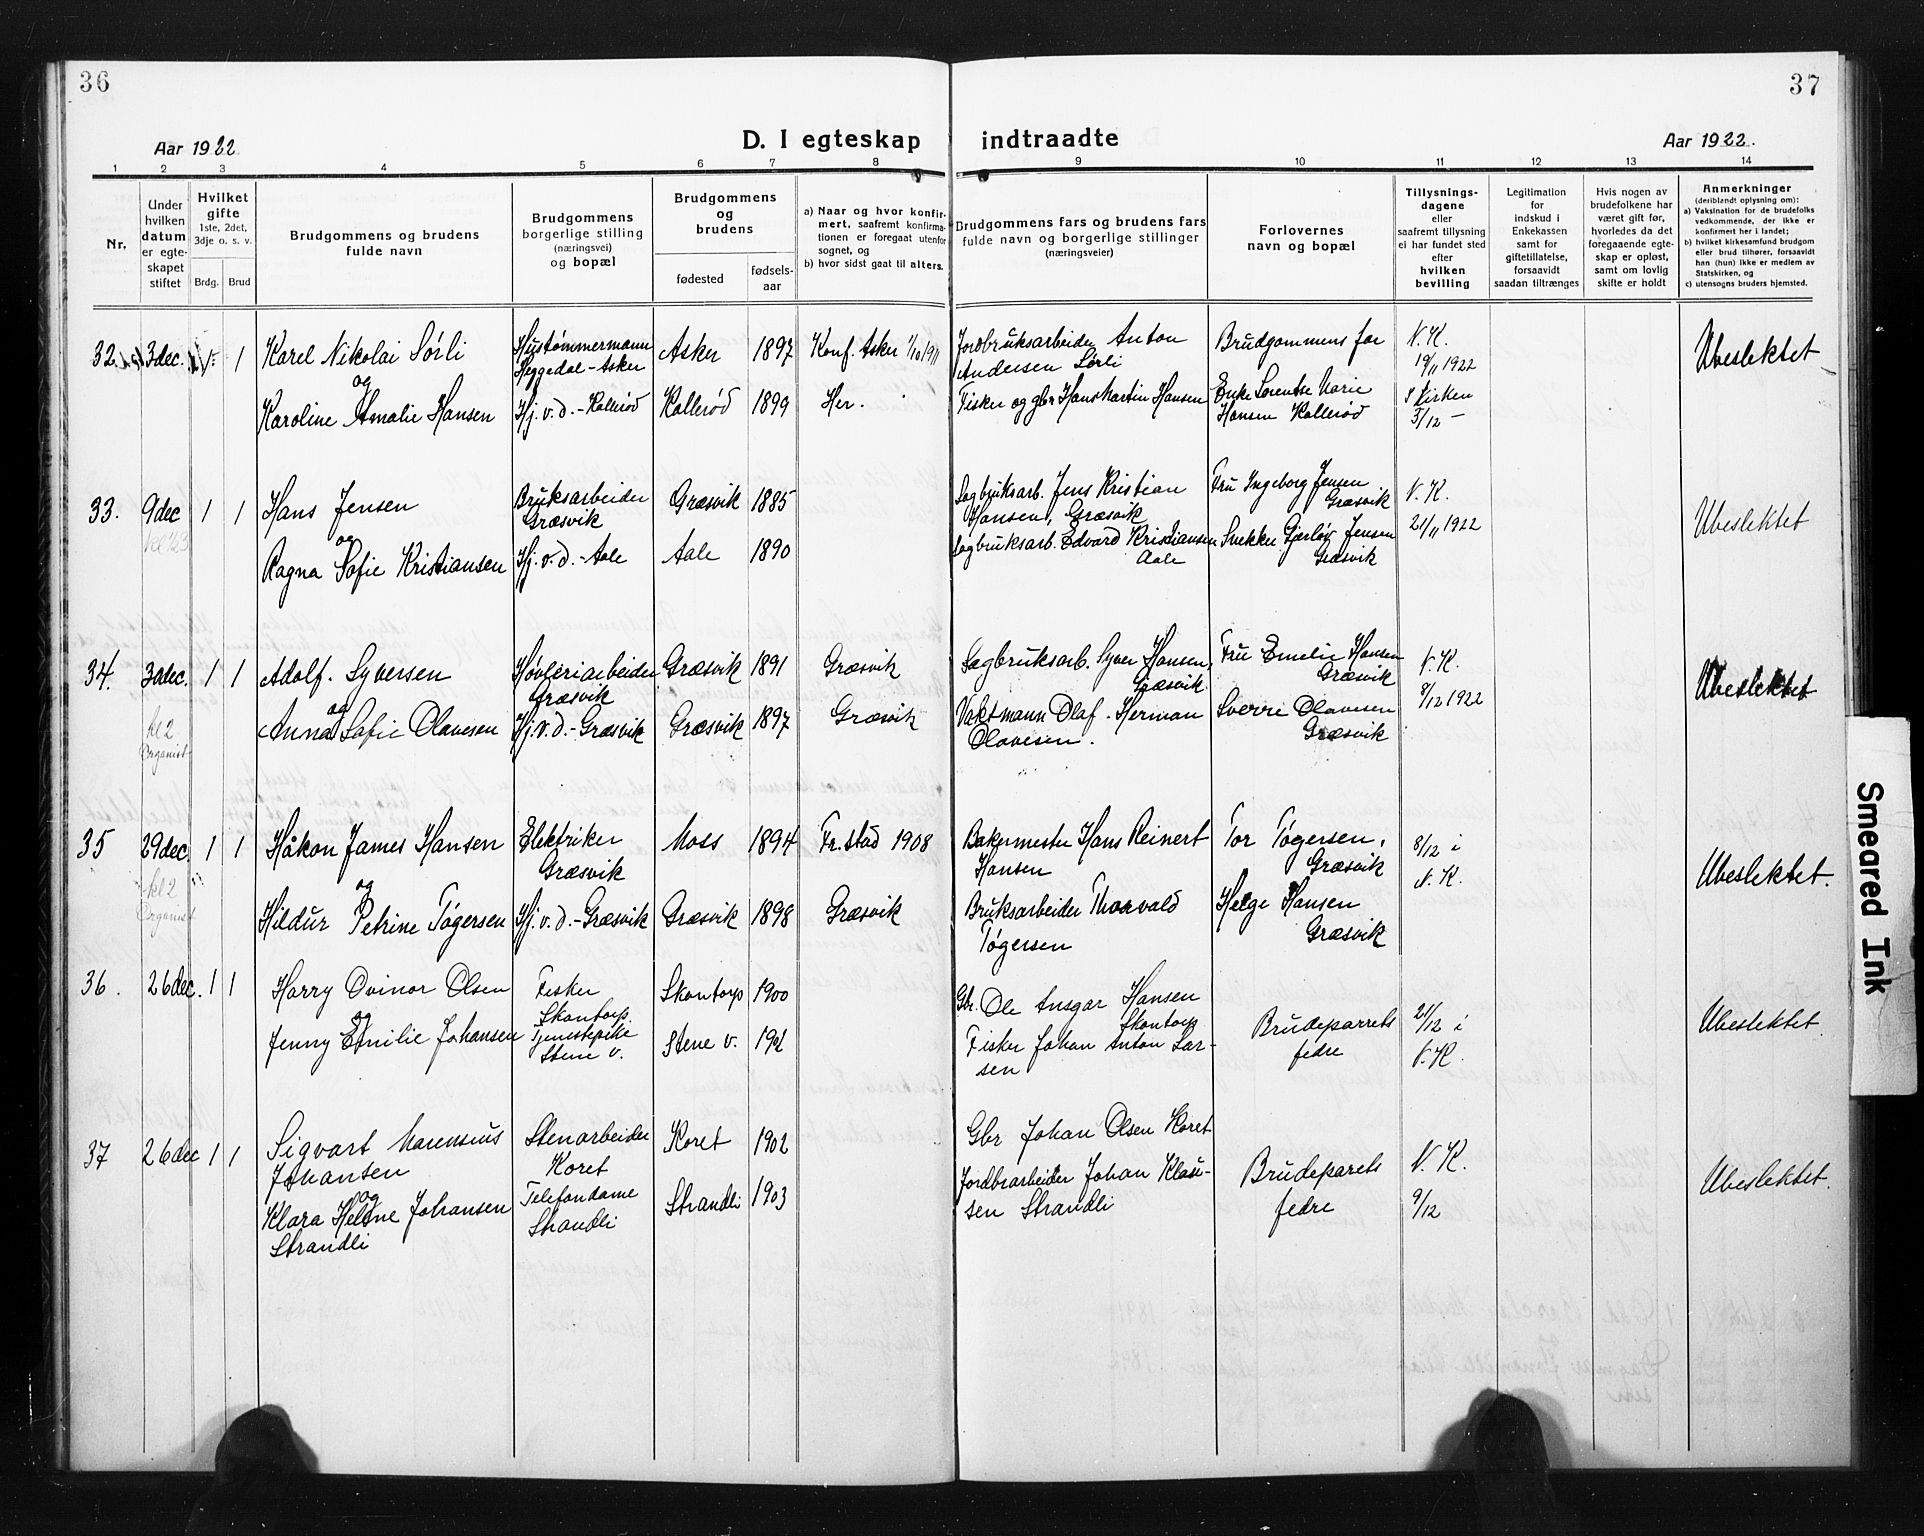 36
37
Aar 1922
D. I egteskap indtraadte
Aar 1922.
1 2 3 4 5 6 7 8 9 10 11 12 13 14
Nr.
Under
hvilken
datum
er egte-
skapet
stiftet
Hvilket
gifte
1ste, 2det,
3dje o. s. v.
Brdg. Brud
Brudgommens og brudens
fulde navn
Brudgommens
borgerlige stilling
(næringsvei)
og bopæl
Brudgommens
og
brudens
fødested
fødsels-
aar
a) Naar og hvor konfir-
mert, saafremt konfirma-
tionen er foregaat utenfor
sognet, og
b) hvor sidst gaat til alters.
Brudgommens fars og brudens fars
fulde navn og borgerlige stillinger
(næringsveier)
Forlovernes
navn og bopæl
Tillysnings-
dagene
eller
saafremt tillysning
ei har fundet sted
efter
hvilken
bevilling
Legitimation
for
indskud i
Enkekassen
samt for
giftetillatelse,
forsaavidt
saadan tiltrænges
Hvis nogen av
brudefolkene har
været gift før,
hvorledes da det
foregaaende egte-
skap er opløst,
samt om lovlig
skifte er holdt
Anmerkninger
(deriblandt oplysning om):
a) Vaksination for de brudefolks
vedkommende, der ikke er
konfirmert her i landet;
b) hvilket kirkesamfund brudgom
eller brud tilhører, forsaavidt
han (hun) ikke er medlem av
Statskirken, og
c) utensogns bruders hjemsted.
32. 3dec. 1 1
Karel Nikolai Sörli
og
Karoline Amalie Hansen
Hustømmermann
Heggedal - Asker
Hj. v. d. - Kallerød
Asker 1897 Konf. Asker 1/10 1911
Kallerød 1899 Her.
Jordbruksarbeider Anton
Andersen Sørli
Fisker og gbr Hans Martin Hansen
Brudgommens far
Enke Lorentse Marie
Hansen Kallerød
N. K.
19/11 1922
I Kirken
3/12 -
Ubeslektet
33. 9dec 1 1
Hans Jensen
og
Ragna Sofie Kristiansen
Bruksarbeider
Græsvik
Hj. v. d. - Aale
Græsvik 1885
Aale 1890
Sagbruksarb. Jens Kristian
Hansen, Græsvik
Sagbruksarb. Edvard Kristiansen
Aale
Fru Ingeborg Jensen
Græsvik
Snekker Gjerløv Jensen
Græsvik
N. K.
21/11 1922
Ubeslektet
34. 30dec. 1 1
kl 2
Organist
Adolf. Syversen
og
Anna Sofie Olavesen
Høvleriarbeider
Græsvik
Hj. v. d. - Græsvik
Græsvik 1891 Græsvik
Græsvik 1897 Græsvik
Sagbruksarb. Syver Hansen,
Græsvik
Vaktmann Olaf. Herman
Olavesen.
Fru Emelie Hansen
Græsvik
Sverre Olavesen
Græsvik
N. K.
8/12 1922
Ubeslektet
35 29dec. 1 1
kl 2
Organist
Håkon James Hansen
og
Hildur Petrine Tøgersen
Elektriker
Græsvik
Hj. v. d. - Græsvik
Moss 1894 Fr.stad 1908
Græsvik 1898 Græsvik
Bakermester Hans Reinert
Hansen
Bruksarbeider Thorvald
Tøgersen
Tor Tøgersen,
Græsvik
Helge Hansen
Græsvik
8/12 i
N. K.
Ubeslektet.
36. 26dec. 1 1
Harry Ovinor Olsen
og
Jenny Emilie Johansen
Fisker
Skantorp.
Tjenestepike
Stene v.
Skantorp 1900
Stene v.
Gbr. Ole Ansgar Hansen
Skantorp
Fisker Johan Anton Lar-
sen
Brudeparrets
fedre
21/12 i
N. K.
Ubeslektet.
37 26dec 1 1
Sigvart Marensius
Johansen
og
Klara Helene Johansen
Strandli
Stenarbeider
Koret
Telefondame
Strandli
Koret 1902
Strandli 1903
Gbr Johan Olsen Koret
Jordbrarbeider Johan Klau-
sen Strandli
Brudeparets
fedre
N. K.
9/12
Ubeslektet.
Smeared Ink